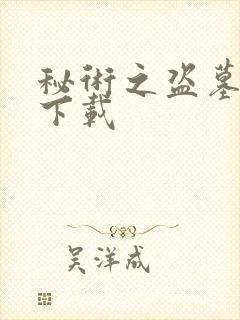 秘術之盗墓
下載
吴洋成